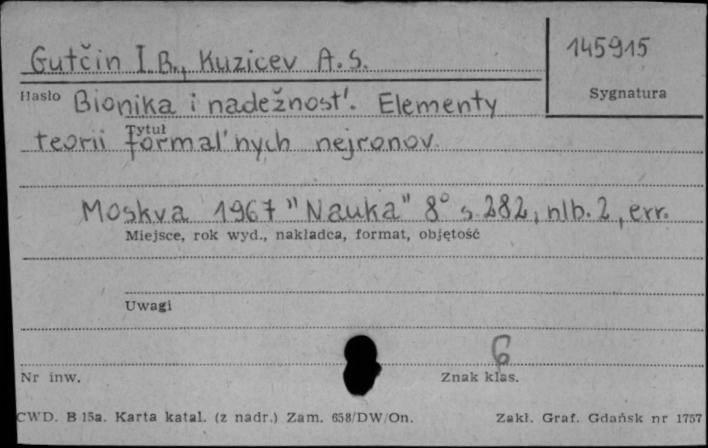 Gutčin I.B., Kuzicev A.S.
145915
Hasło
Sygnatura
Bionika i nadežnost'. Elementy
Tytuł
teorii formal'nych nejronov.
Moskva 1967 "Nauka" 8° s. 282, nlb. 2, err.
Miejsce, rok wyd., nakładca, format, objętość
Uwagi
6
Nr inw.
Znak klas.
CWD. B 15a. Karta katal. (z nadr.) Zam. 658/DW/On.
Zakł. Graf. Gdańsk nr 1757